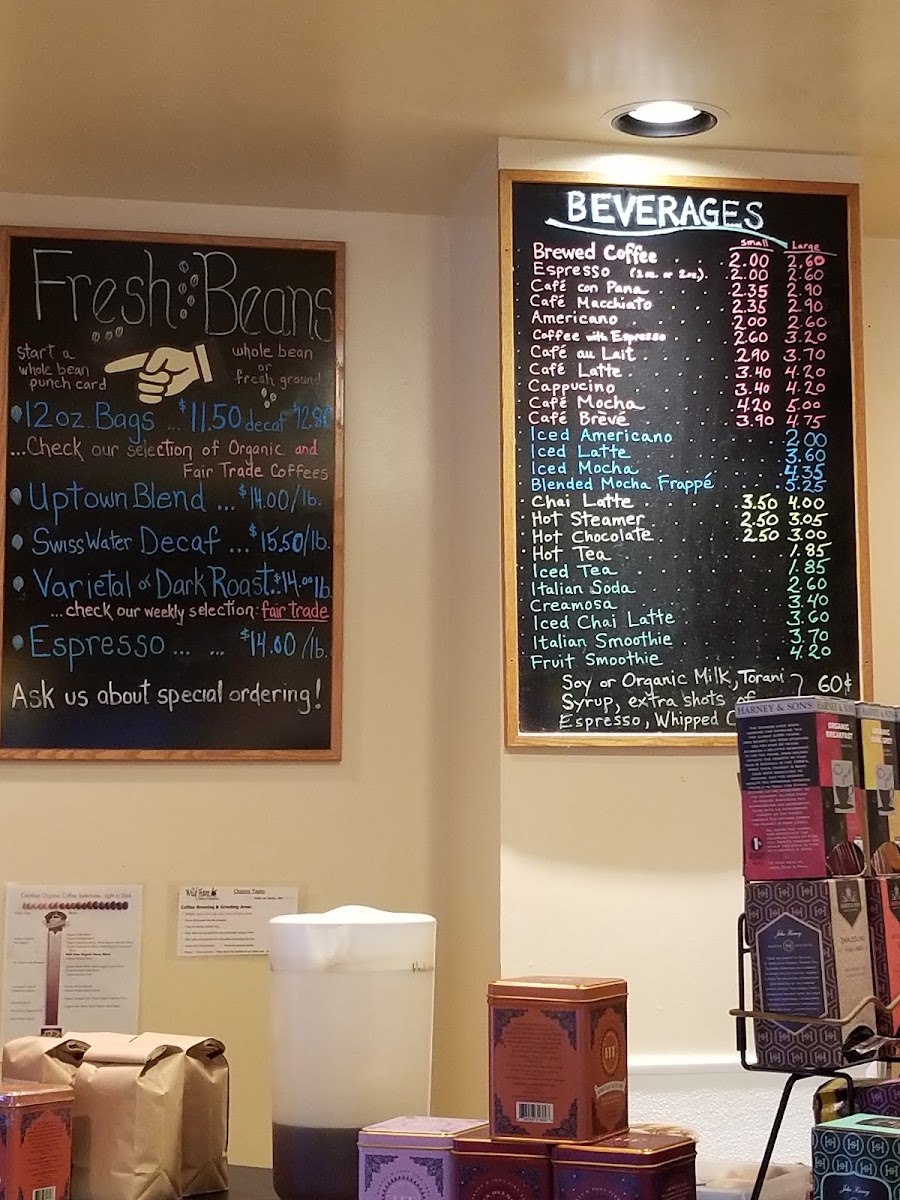 Fresh Beans
start a
whole bean
punch card
whole bean
or
fresh ground
12 oz. Bags ... $11.50 decaf 12.80
...Check our selection of Organic and
Fair Trade Coffees
Uptown Blend ... $14.00/lb.
Swiss Water Decaf ... $15.50/lb.
Varietal or Dark Roast.. $14.00 lb.
...check our weekly selection: fair trade
Espresso ... ... $14.00/lb.
Ask us about special ordering!
BEVERAGES
Small Large
Brewed Coffee 2.00 2.60
Espresso (1 oz. or 2 oz.) 2.00 2.60
Café con Pana 2.35 2.90
Café Macchiato 2.35 2.90
Americano 2.00 2.60
Coffee with Espresso 2.60 3.20
Café au Lait 2.90 3.70
Café Latte 3.40 4.20
Cappucino 3.40 4.20
Café Mocha 4.20 5.00
Café Brevé 3.90 4.75
Iced Americano 2.00
Iced Latte 3.60
Iced Mocha 4.35
Blended Mocha Frappé 5.25
Chai Latte 3.50 4.00
Hot Steamer 2.50 3.05
Hot Chocolate 2.50 3.00
Hot Tea 1.85
Iced Tea 1.85
Italian Soda 2.60
Creamosa 3.40
Iced Chai Latte 3.60
Italian Smoothie 3.70
Fruit Smoothie 4.20
Soy or Organic Milk, Torani
Syrup, extra shots of
Espresso, Whipped C
60¢
HARNEY & SONS
ORGANIC
BREAKFAST
ORGANIC
Certified Organic Coffee Selections - Light to Dark
Coffee Brewing & Grinding Area: